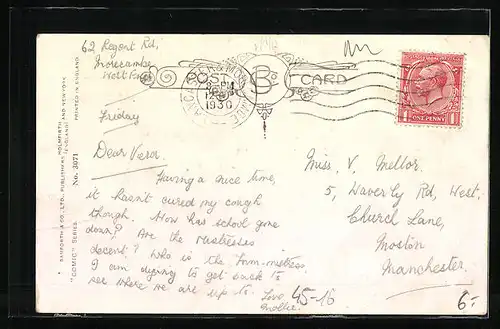 62 Regent Rd,
Morecambe,
West
Friday
POST CARD
LANCASTER & MORECAMBE
PM
1930
ONE PENNY
Dear Veror.
Having a nice time,
it hasn't cured my cough
though. How has school gone
down? Are the Mistresses
decent? Who is the form-mistress.
I am dying to get back to
see where we are up to. Love,
Mollie.
Miss, V, Mellor,
5, Waverly Rd, West,
Church Lane,
Moston
Manchester.
45-16
6.-
"COMIC" SERIES No. 3071
BAMFORTH & CO., LTD., PUBLISHERS, HOLMFIRTH (ENGLAND) AND NEW YORK
PRINTED IN ENGLAND